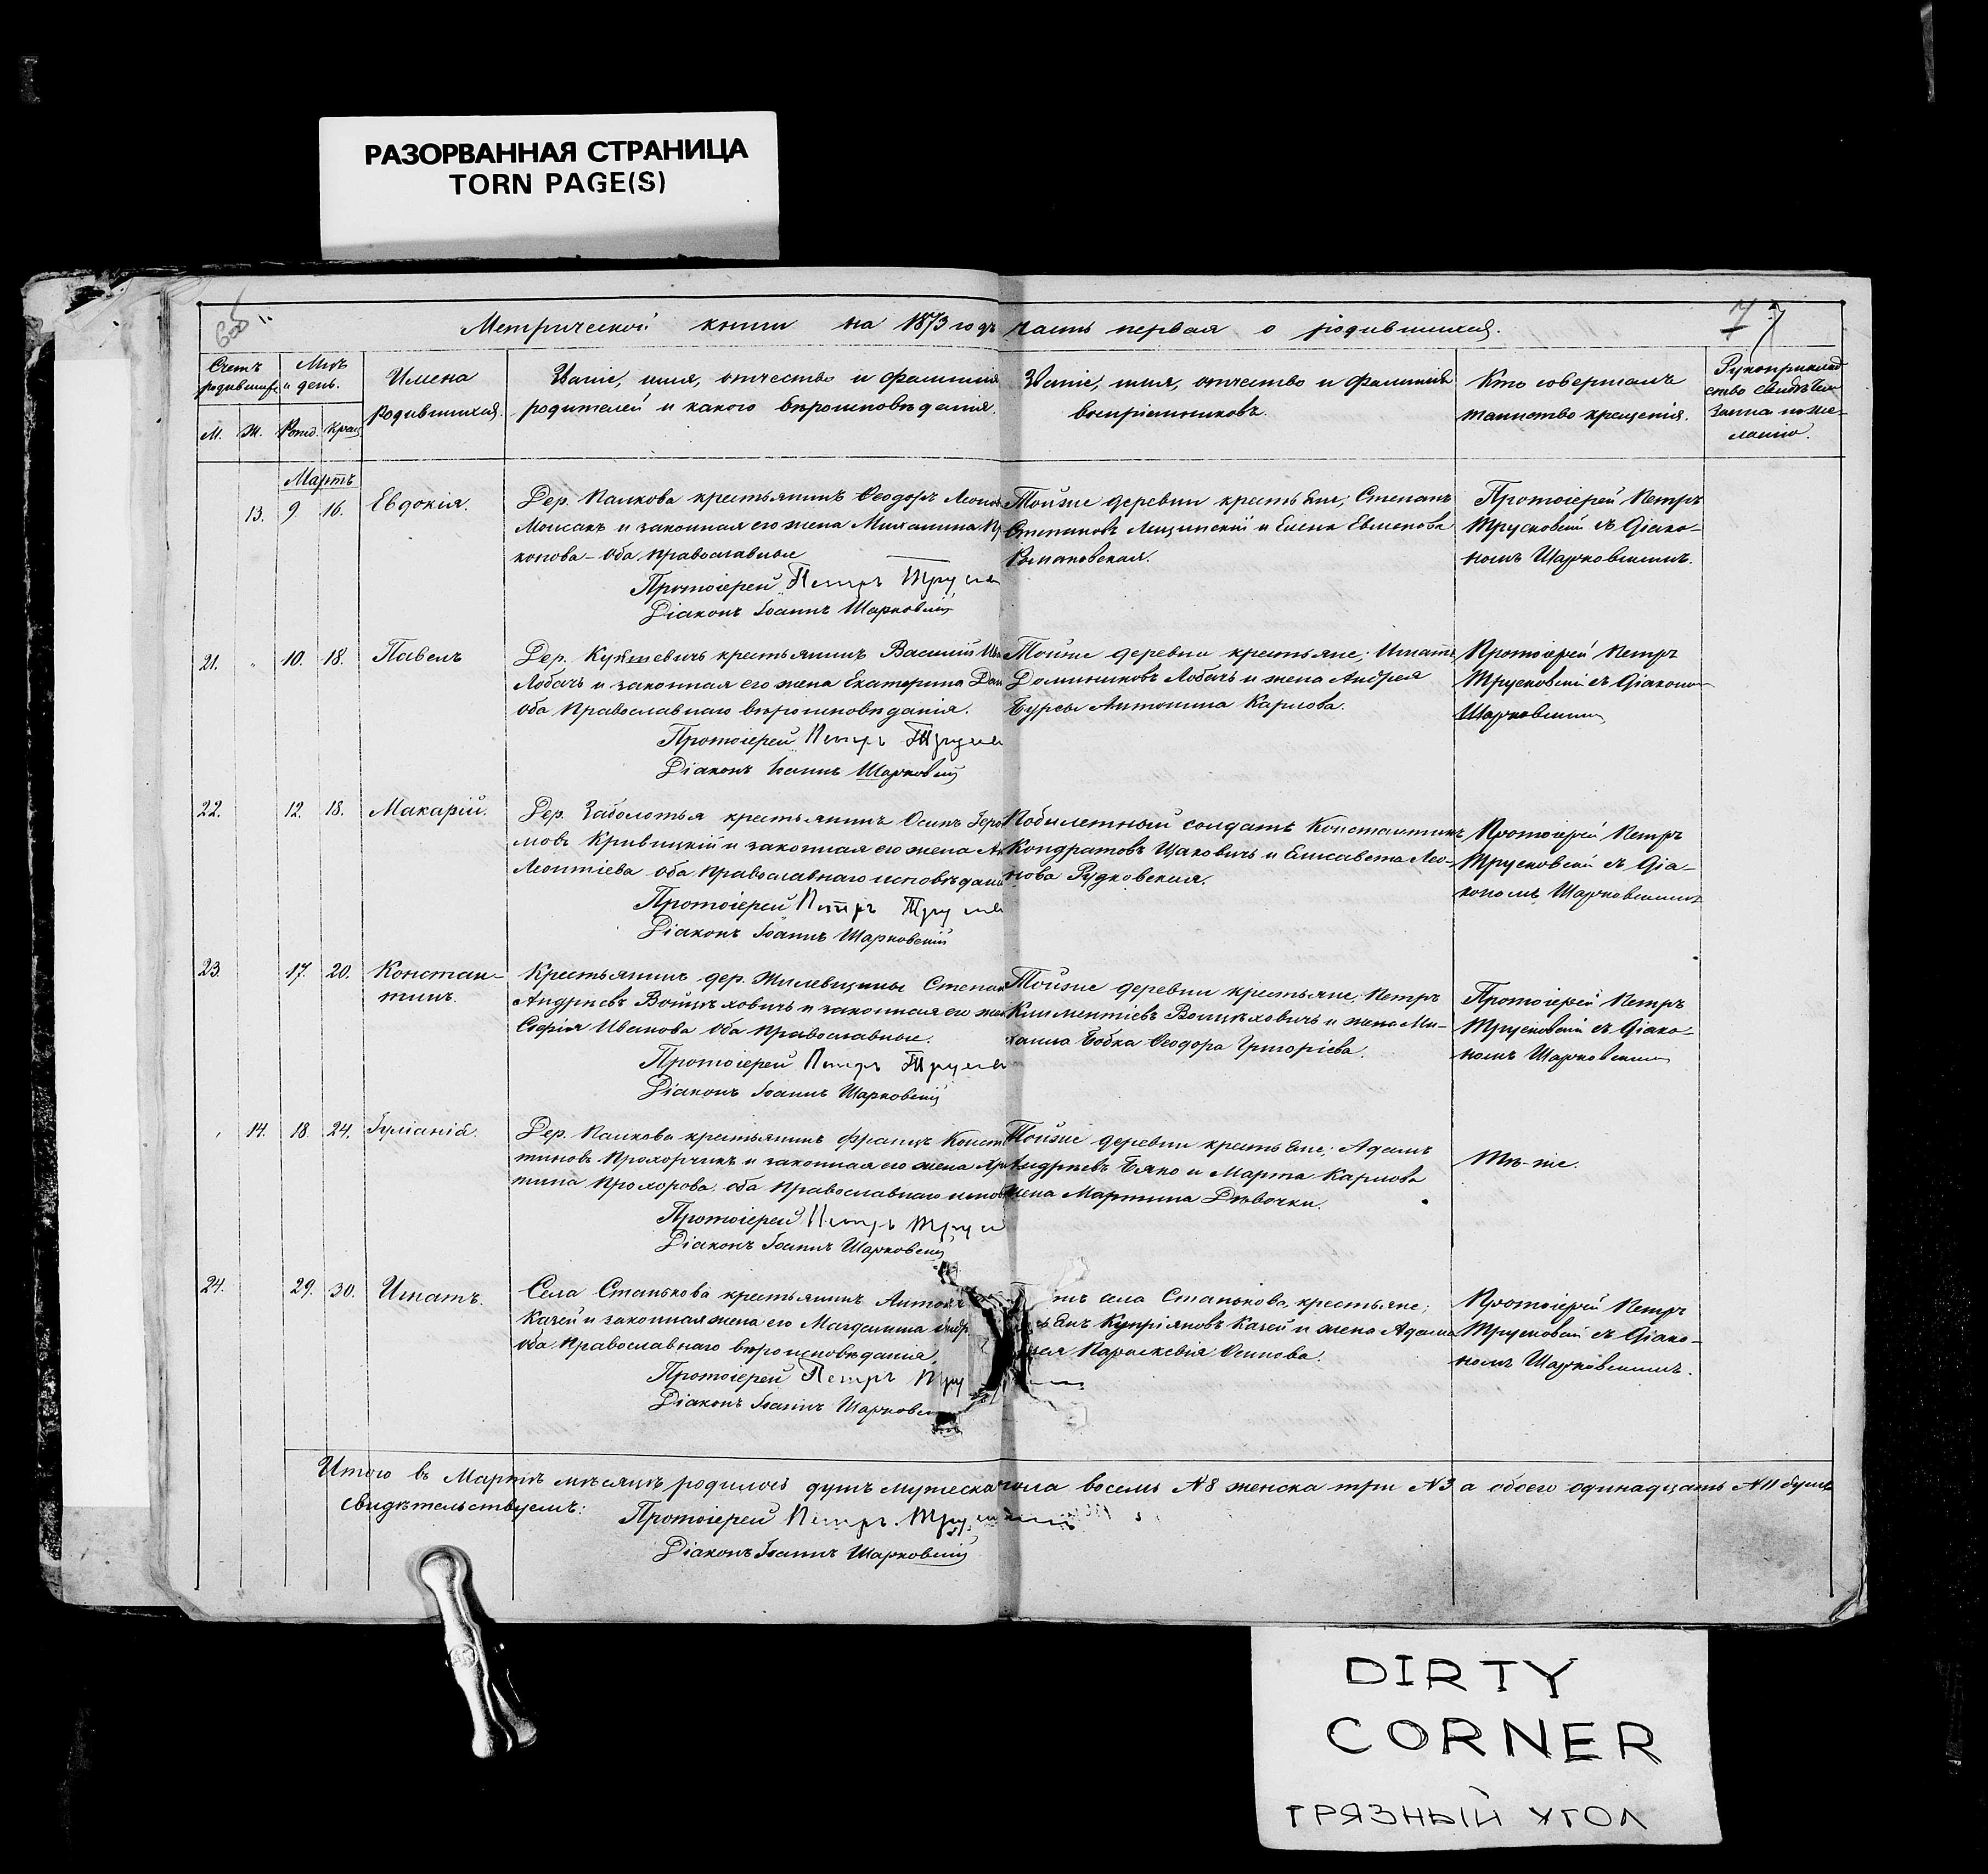 РАЗОРВАННАЯ СТРАНИЦА
TORN PAGE(S)
Метрической книги на 1873 годъ часть первая о родившихся.
7
Счетъ родившихся
М. Ж.
Мѣс. и день.
Рожд. Крещ.
Имена
родившихся.
Званіе, имя, отчество и фамилія
родителей и какого вѣроисповѣданія.
Званіе, имя, отчество и фамилія
воспріемниковъ.
Кто совершалъ
таинство крещенія.
Рукоприклад
ство свидѣтелей
записи по же-
ланію.
Мартъ
13. 9 16. Евдокія.
Дер. Палкова крестьянинъ Ѳеодоръ
Моисакъ и законная его жена Михалина
конова – оба православные
Протоіерей Петръ
Діаконъ Іоаннъ Шарковскій
Тойже деревни крестьяне, Степанъ
Степановъ Лещинскій и Елена Евменова
Протоіерей Петръ
Трусковскій съ Діако-
номъ Шарковскимъ.
21. " 10. 18. Павелъ
Дер. крестьянинъ Василій
Лобачъ и законная его жена Екатерина
оба Православнаго вѣроисповѣданія.
Протоіерей Петръ
Діаконъ Іоаннъ Шарковскій
Тойже деревни крестьяне, Игнатъ
Доминиковъ Лобачъ и жена Андрея
Бурсы Антонина Карлова.
Протоіерей Петръ
Трусковскій съ Діакономъ
Шарковскимъ
22. 12. 18. Макарій.
Дер. Заболотья крестьянинъ Осипъ
мовъ Кривицкій и законная его жена
Леонтіева оба Православнаго исповѣданія
Протоіерей Петръ
Діаконъ Іоаннъ Шарковскій
Побилетный солдатъ Константинъ
Кондратовъ Щаковичъ и Елисавета Лео-
нова Рудковская.
Протоіерей Петръ
Трусковскій съ Діа-
кономъ Шарковскимъ
23. 17. 20. Констан-
тинъ.
Крестьянинъ дер. Жилевщины Степан
Андреевъ Войцѣховичъ и законная его жена
Софія Иванова оба Православные.
Протоіерей Петръ
Діаконъ Іоаннъ Шарковскій
Тойже деревни крестьяне, Петръ
Климентіевъ Войцѣховичъ и жена Ми-
хаила Бобка Ѳеодора Григоріева.
Протоіерей Петръ
Трусковскій съ Діако-
номъ Шарковскимъ
14. 18. 24. Іуліанія.
Дер. Палкова крестьянинъ Францъ Конст
тиновъ Прохорчикъ и законная его жена
тина Прохорова оба Православнаго испов
Протоіерей Петръ
Діаконъ Іоаннъ Шарковскій
Тойже деревни крестьяне, Адамъ
Андреевъ Бяко и Марта Карлова
жена Мартина Дѣвочки.
Тѣ-же.
24. 29. 30. Игнатъ.
Села Станькова крестьянинъ Антонъ
Казей и законная жена его Магдалина Андр
оба Православнаго вѣроисповѣданія.
Протоіерей Петръ
Діаконъ Іоаннъ Шарковскій
села Станькова крестьяне,
Купріяновъ Казей и жена Адама
Параскевія Осипова.
Протоіерей Петръ
Трусковскій съ Діако-
номъ Шарковскимъ.
Итого въ Мартѣ мѣсяцѣ родилось душъ мужеска пола восемь №8 женска три №3 а обоего одинадцать №11
свидѣтельствуемъ:
Протоіерей Петръ
Діаконъ Іоаннъ Шарковскій
DIRTY
CORNER
ГРЯЗНЫЙ УГОЛ